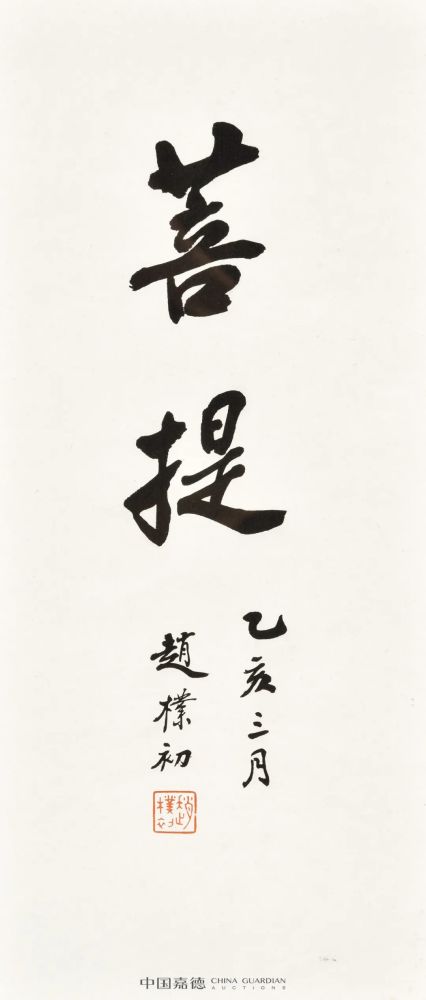 菩提
乙亥三月
趙樸初
趙樸初
中国嘉德 CHINA GUARDIAN
AUCTIONS